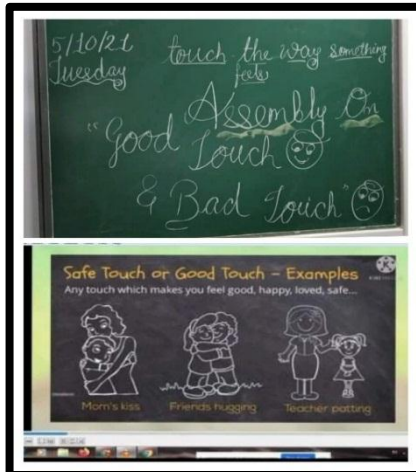 5/10/21
Tuesday
touch the way something
feels
Assembly On
"Good Touch
& Bad Touch"
Safe Touch or Good Touch – Examples
Any touch which makes you feel good, happy, loved, safe...
Mom's kiss
Friends hugging
Teacher patting